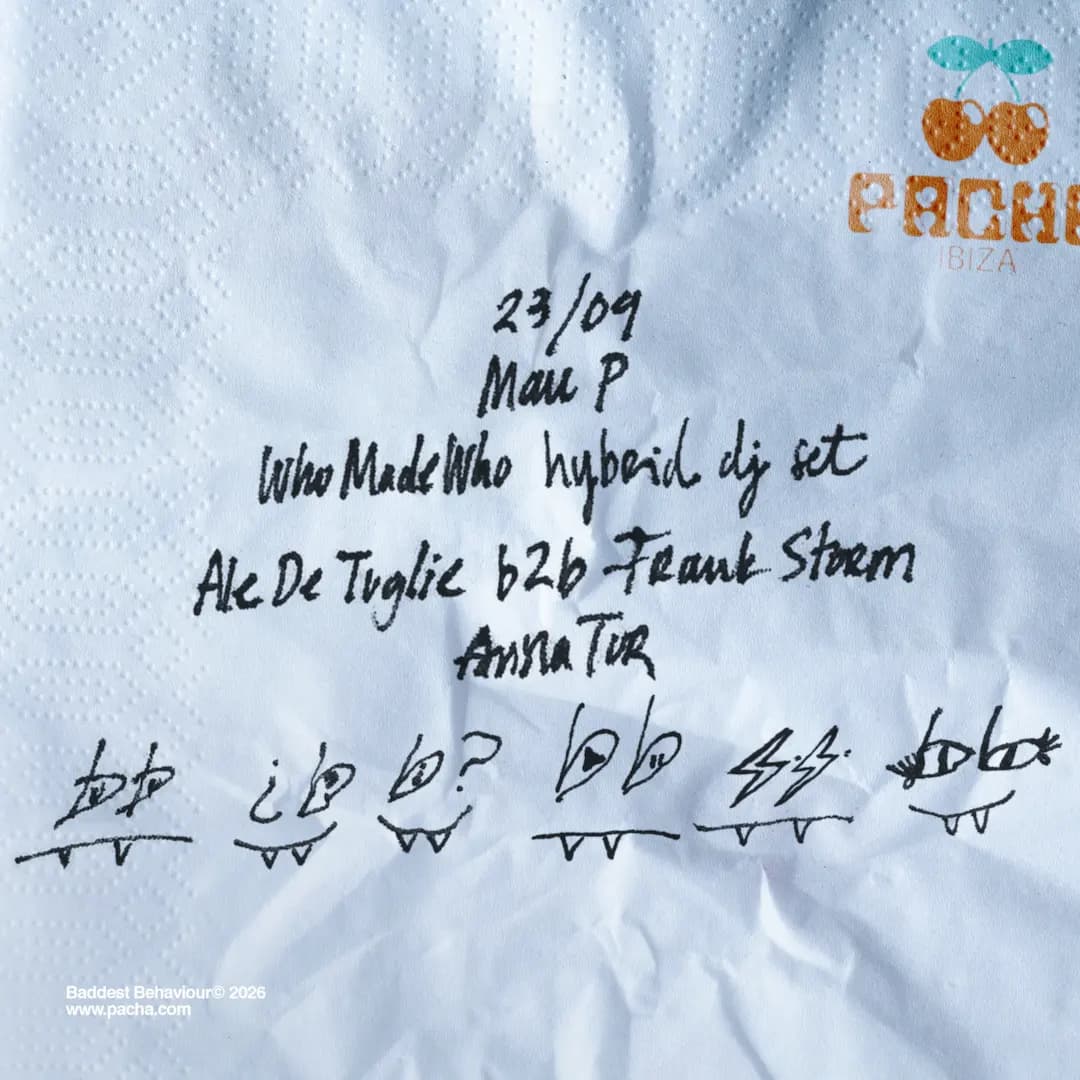 PACHA
IBIZA
23/09
Mau P
WhoMadeWho hybrid dj set
Ale De Tuglie b2b Frank Storm
Anna Tur
Baddest Behaviour© 2026
www.pacha.com